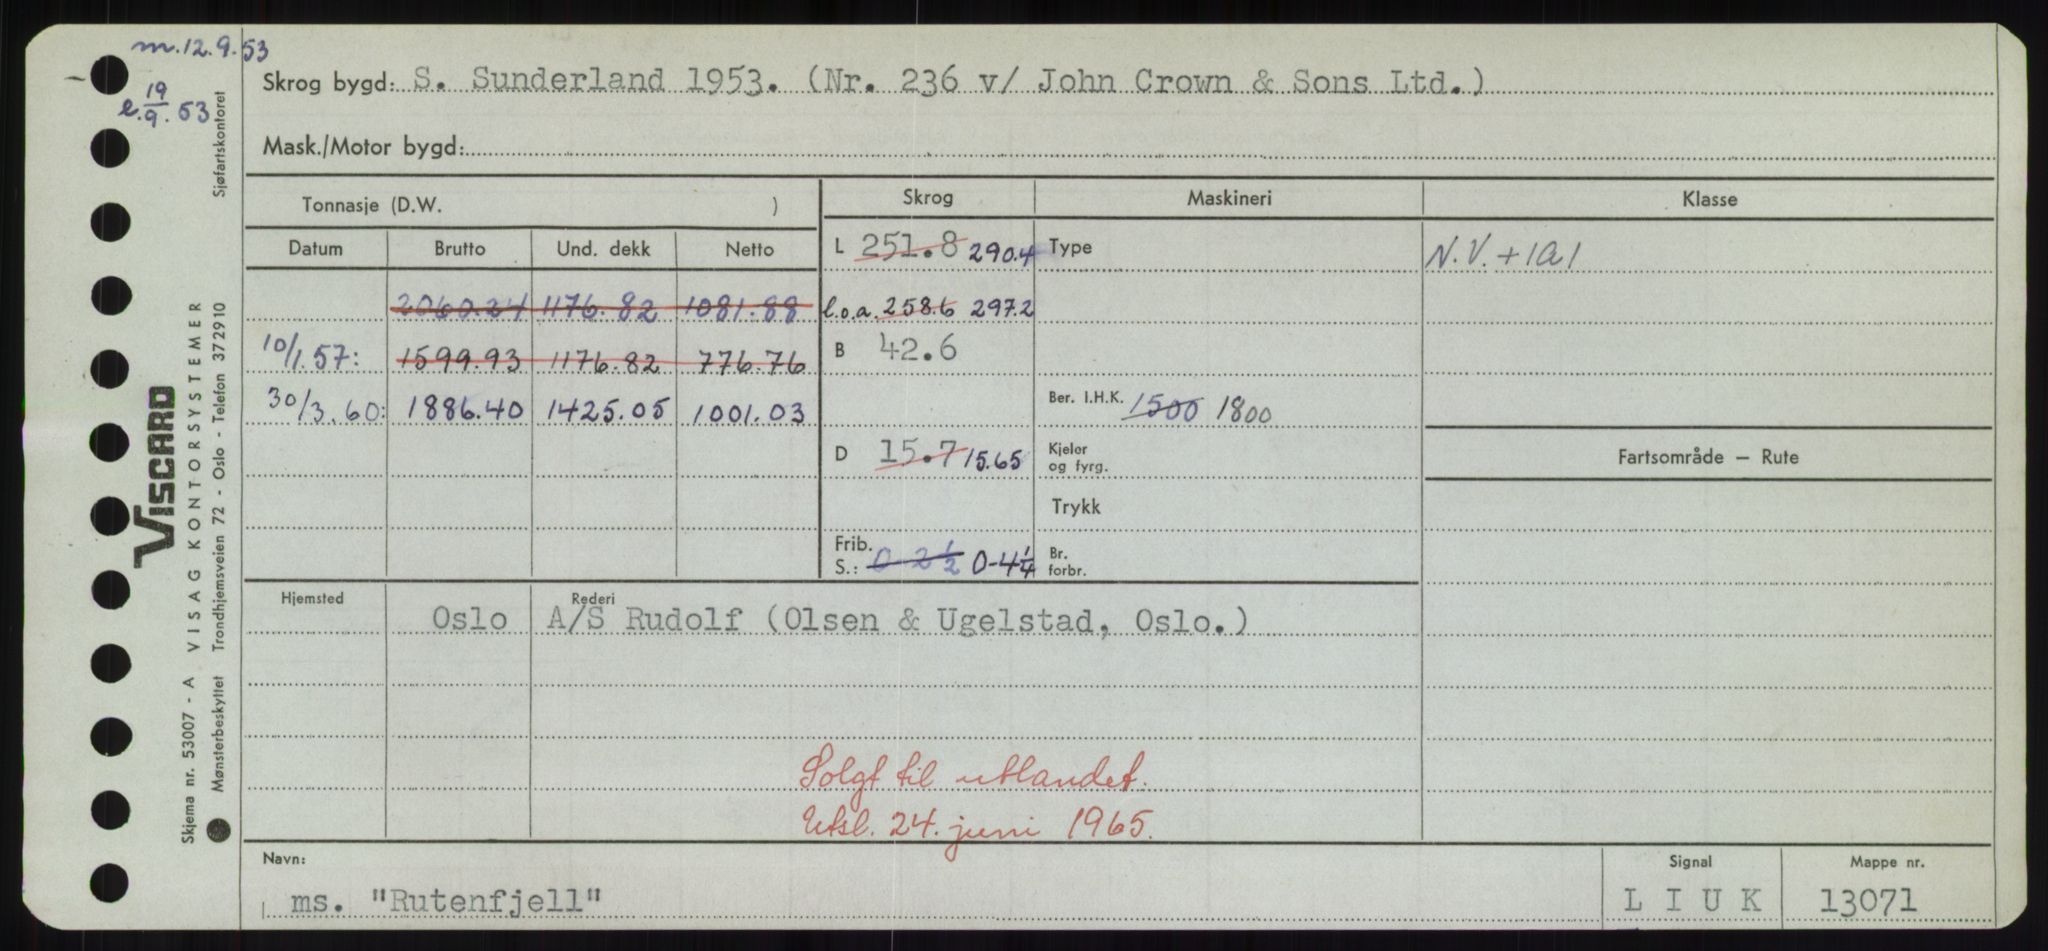 m. 12.9.53
e. 19/9. 53
Skrog bygd: S. Sunderland 1953. (Nr. 236 v/ John Crown & Sons Ltd.)
Mask./Motor bygd:
Tonnasje (D.W. )
Skrog Maskineri Klasse
Datum Brutto Und. dekk Netto
L 251.8 290.4 Type N.V. + 1A1
2060.24 1176.82 1081.88 l.o.a. 258.6 297.2
10/1.57: 1599.93 1176.82 776.76 B 42.6
30/3.60: 1886.40 1425.05 1001.03 Ber. I.H.K. 1500 1800
D 15.7 15.65 Kjeler og fyrg. Fartsområde – Rute
Trykk
Frib. S.: 0-2 1/2 0-4 1/4 Br. forbr.
Hjemsted Rederi
Oslo A/S Rudolf (Olsen & Ugelstad, Oslo.)
Solgt til utlandet.
Utsl. 24. juni 1965.
Navn: Signal Mappe nr.
ms. "Rutenfjell" L I U K 13071
Sjøfartskontoret
VISCARD
Skjema nr. 53007 - A VISAG KONTORSYSTEMER
Mønsterbeskyttet Trondhjemsveien 72 - Oslo - Telefon 372910